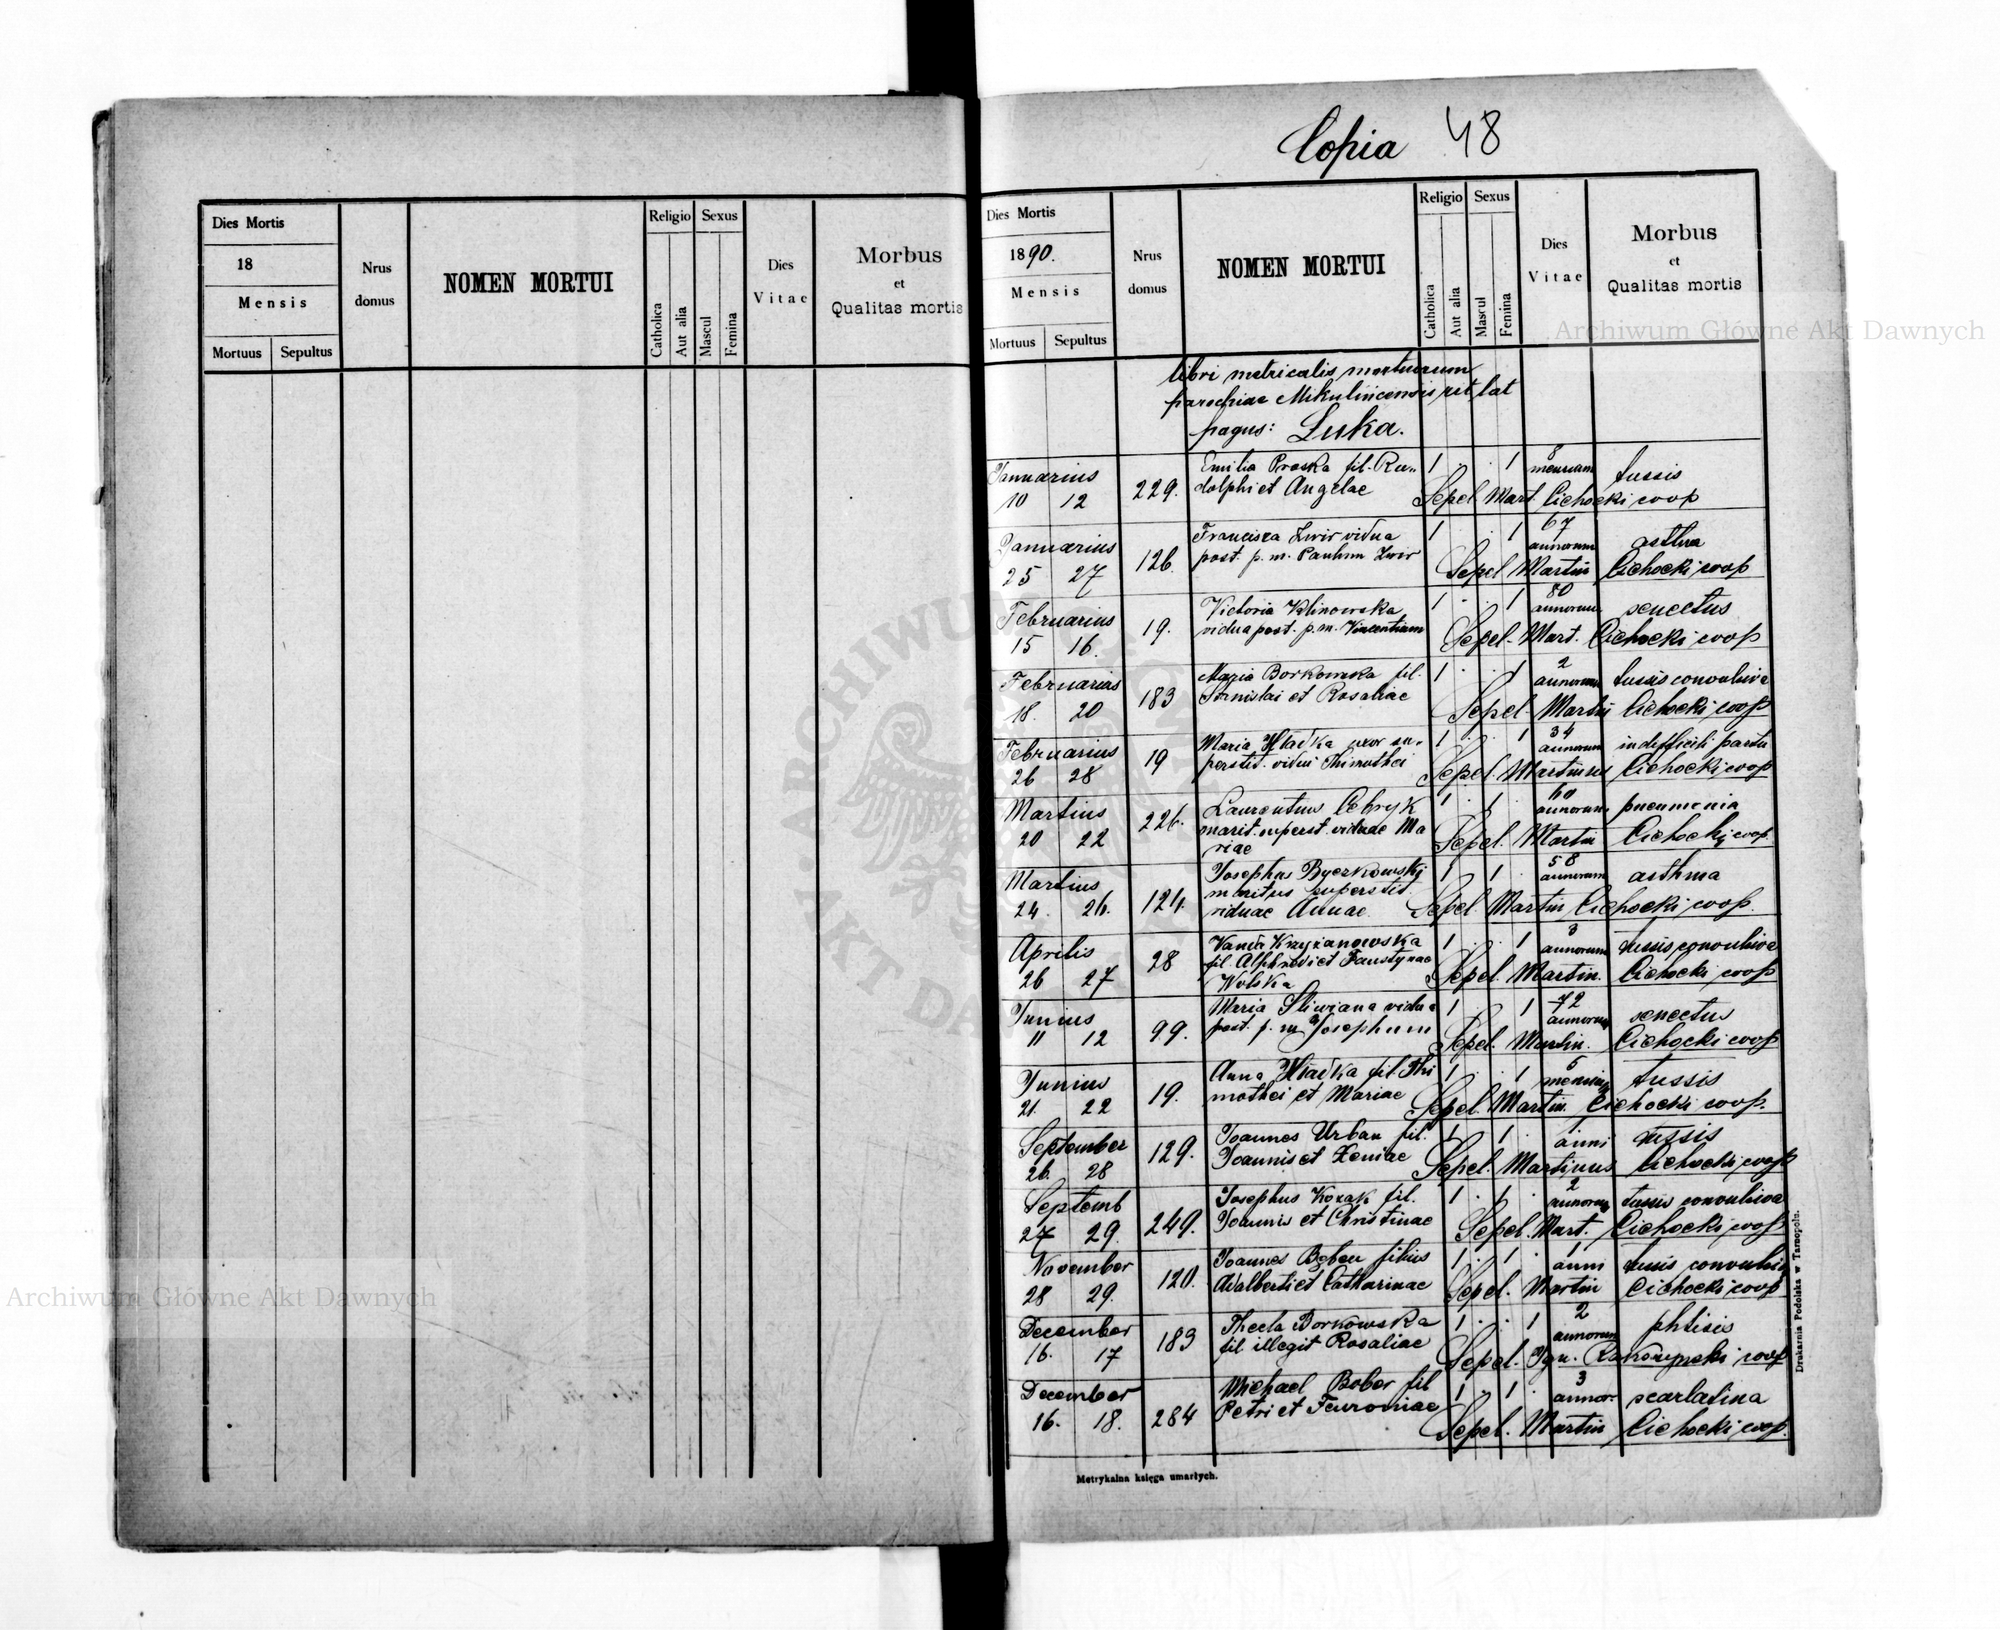 Dies Mortis
18
Mensis
Mortuus Sepultus
Nrus
domus
NOMEN MORTUI
Religio
Catholica
Aut alia
Sexus
Mascul
Femina
Dies
Vitae
Morbus
et
Qualitas mortis
Copia 48
Dies Mortis
1890.
Mensis
Mortuus Sepultus
Nrus
domus
NOMEN MORTUI
Religio
Catholica
Aut alia
Sexus
Mascul
Femina
Dies
Vitae
Morbus
et
Qualitas mortis
libri metricalis mortuorum
parochiae Mikulincensis rit lat
pagus: Luka.
Januarius Emilia Proska fil. Ru- 1 . . 1 8 mensium tussis
10 12 229. dolphi et Angelae Sepel. Mart. Cichocki coop
Januarius Francisca Zwir vidua 1 . 1 67 annorum
25 27 126. post. p. m. Paulum Zwir Sepel Martin Cichocki coop
Februarius Victoria Klinowska 1 . . 1 80 annorum senectus
15 16. 19. vidua post. p. m. Vincentium Sepel. Mart. Cichocki coop
Februarius Maria Borkowska fil. 1 . . 1 2 annorum tussis convulsiva
18. 20 183 Stanislai et Rosaliae Sepel. Martin Cichocki coop
Februarius Maria uxor su- 1 . . 1 34 annorum in difficili partu
26 28 19 perstit. vidui Thimothei Sepel. Martinus Cichocki coop
Martius Laurentius 1 . 1 . 60 annorum pneumonia
20 22 226. marit. superst. viduae Ma Sepel. Martin Cichocki coop.
riae
Martius Josephus Byczkowski 1 . 1 . 58 annorum asthma
24. 26. maritus superstit.
viduae Annae. Sepel. Martin Cichocki coop.
Aprilis Vanda Krzyżanowska 1 . . 1 3 annorum tussis convulsiva
26 27 28 fil. Alphredi et Faustynae Sepel. Martin. Cichocki coop
Wolska
Junius Maria vidua 1 . . 1 72 annorum senectus
11 12 99. post. p. m. Josephum Sepel. Martin. Cichocki coop
Junius Anna fil Thi 1 . . 1 5 mensium tussis
21. 22 19. mothei et Mariae Sepel. Martin. Cichocki coop.
September Joannes Urban fil. 1 . 1 . 1 anni tussis
26. 28 129. Joannis et Xeniae Sepel. Martinus Cichocki coop
Septemb Josephus Kozak fil. 1 . 1 . 2 annorum tussis convulsiva
27 29. 249. Joannis et Christinae Sepel. Mart. Cichocki coop
November Joannes filius 1 . 1 . 1 anni tussis convulsiva
28 29. 120. Adalberti et Catharinae Sepel. Martin Cichocki coop
December Thecla Borkowska 1 . . 1 2 annorum phtisis
16. 17 183 fil illegit Rosaliae Sepel. Ign. coop
December Michael Bober fil 1 . 1 . 3 annor. scarlatina
16. 18. 284 Petri et Feuroniae Sepel. Martin Cichocki coop.
Metrykalna księga umarłych.
Drukarnia Podolska w Tarnopolu.
Archiwum Główne Akt Dawnych
Archiwum Główne Akt Dawnych